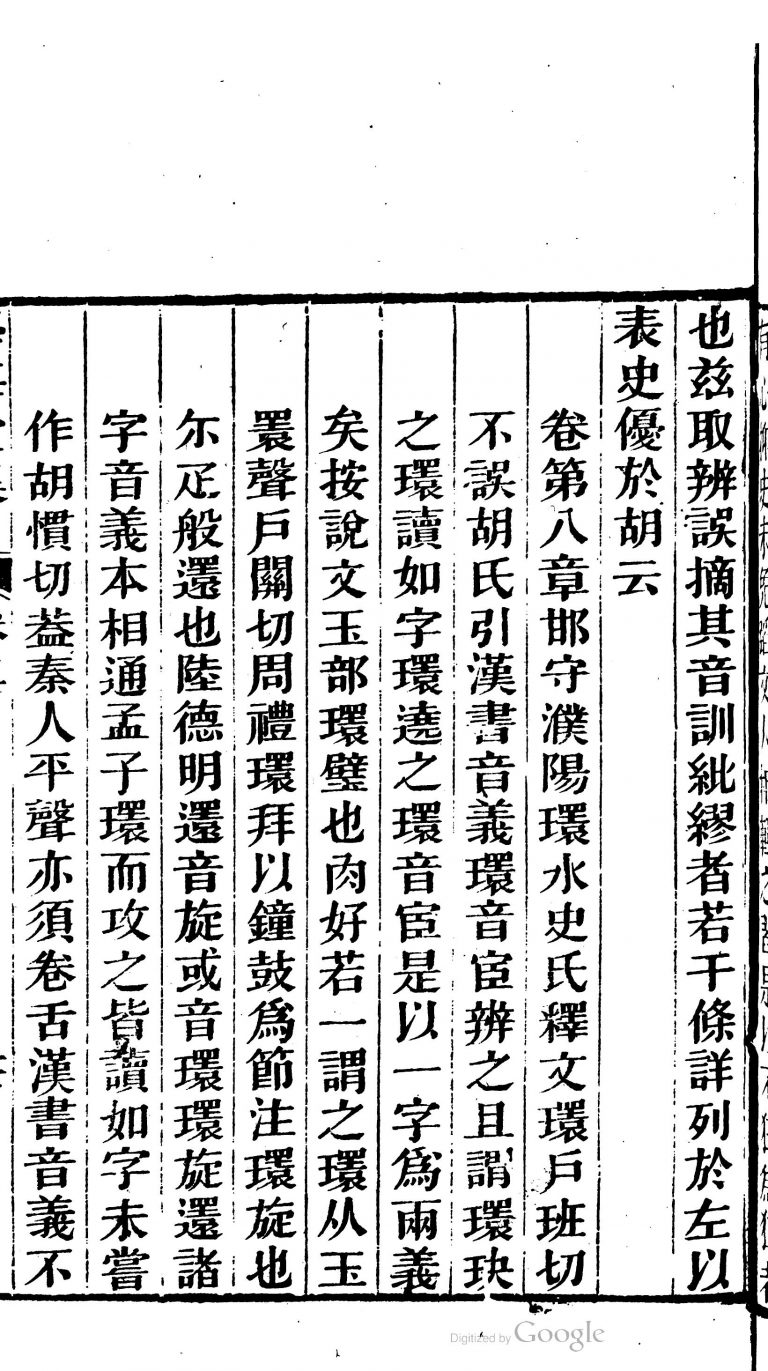 也玆取辨誤摘其音訓紕繆者若干條詳列於左以
表史優於胡云
卷第八章邯守濮陽環水史氏釋文環戶班切
不誤胡氏引漢書音義環音宦辨之且謂環玦
之環讀如字環遶之環音宦是以一字爲兩義
矣按說文玉部環璧也肉好若一謂之環从玉
睘聲戶關切周禮環拜以鐘鼓爲節注環旋也
尓疋般還也陸德明還音旋或音環環旋還諸
字音義本相通孟子環而攻之皆讀如字未嘗
作胡慣切葢秦人平聲亦須卷舌漢書音義不
Digitized by Google